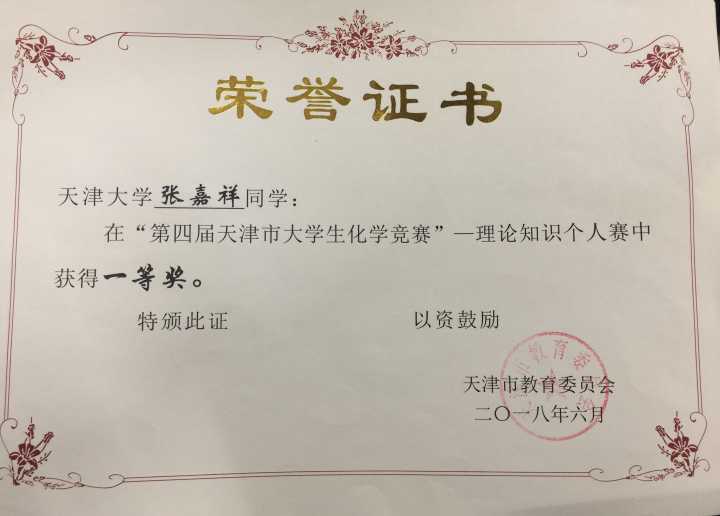 荣誉证书
天津大学张嘉祥同学：
在“第四届天津市大学生化学竞赛”—理论知识个人赛中
获得一等奖。
特颁此证 以资鼓励
天津市教育委员会
二〇一八年六月